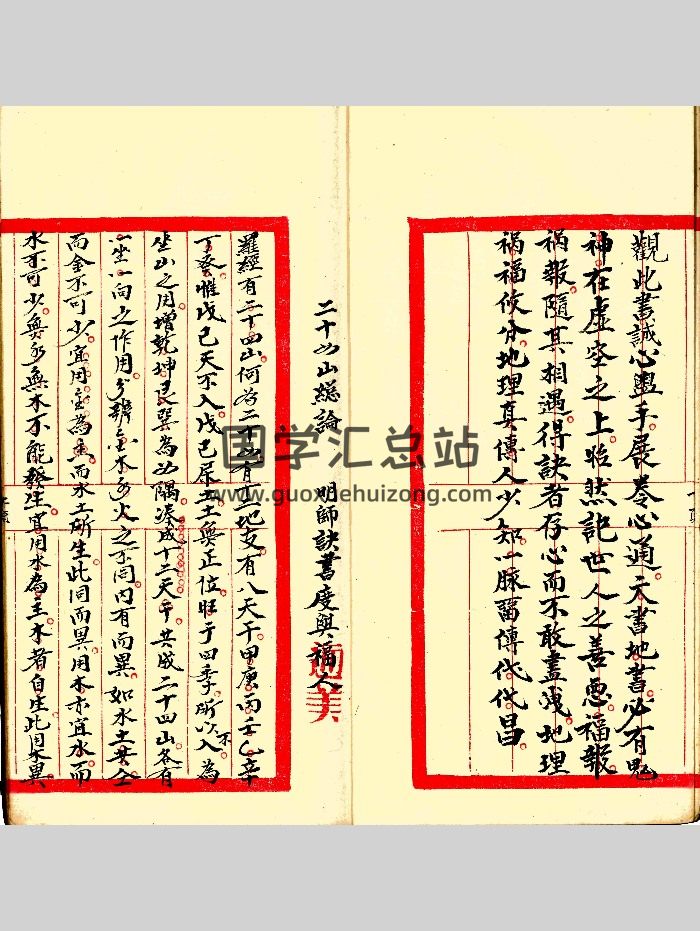 觀此書誠心盥手展卷心通天書地書必有鬼
神在虛空之上昭然記世人之善惡福報
禍報隨其相遇得訣者存心而不敢盡洩地理
禍福攸分地理真傳人少知一脉留傳代代昌
二十四山総論 明師訣書度與福人
羅經有二十四山何為二十四有十二地支有八天干甲庚丙壬乙辛
丁癸惟戊己天不入戊己屎土土無正位旺于四季所以不入為
坐山之用增乾坤艮巽為四隅湊成十二天干共成二十四山各有
一坐一向之作用分辨金木水火之不同内有而異如水土共仝
而金不可少宜用金為主而水土所生此同而異用木亦宜水而
水不可少無水無木不能發生宜用水為主木者自生此同异
国学汇总站
www.guoxuehuizong.com